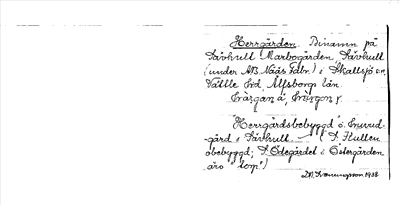 Herrgården. Binamn på
Sävhult Marbogården, Sävhult
(under AB. Nääs Fabr.) i Skallsjö sn,
Vättle hd, Älfsborgs län.
"Herrgårdsbebyggd" ö.
gård i Sävhult. Hulten
obebyggd; Ödegärdet i Östergården
äro "torp")
1938